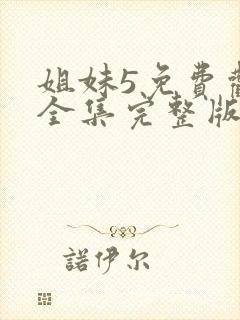 姐妹5免費
全集完整版
諾伊尔